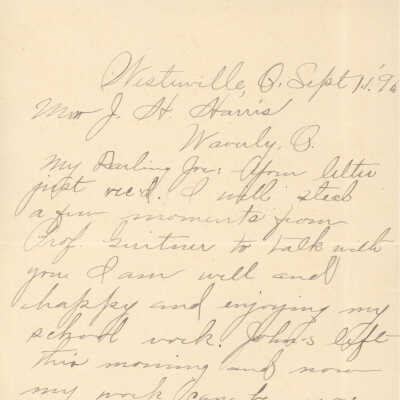 Westerville, O. Sept 11. '96
Mrs J. H. Harris
Waverly, O.
My Darling Joe: Your letter
just rec'd. I will steal
a few moments from
Prof. Guitner to talk with
you. I am well and
happy and enjoying my
school work. John's left
this morning and now
my work can be